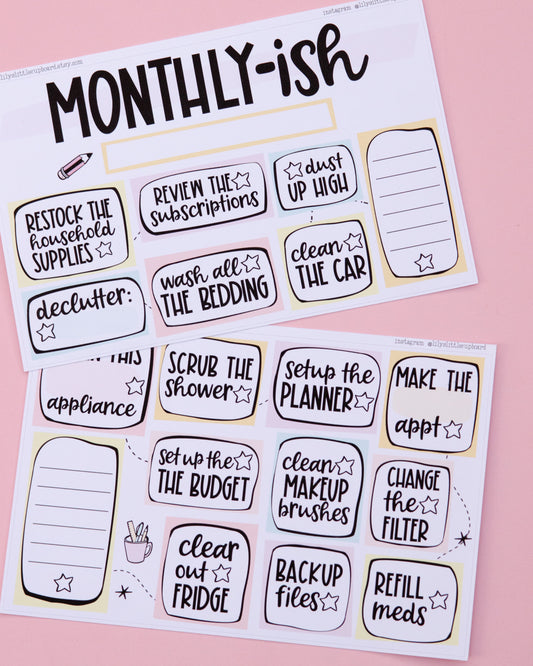 instagram @lilyslittlecupboard
lilyslittlecupboard.etsy.com
MONTHLY-ish
RESTOCK THE
household
SUPPLIES
REVIEW THE
subscriptions
dust
UP HIGH
declutter:
wash all
THE BEDDING
clean
THE CAR
instagram @lilyslittlecupboard
THIS
appliance
SCRUB THE
shower
setup the
PLANNER
MAKE THE
appt
set up the
THE BUDGET
clean
MAKEUP
brushes
CHANGE
the
FILTER
clear
out
FRIDGE
BACKUP
files
REFILL
meds